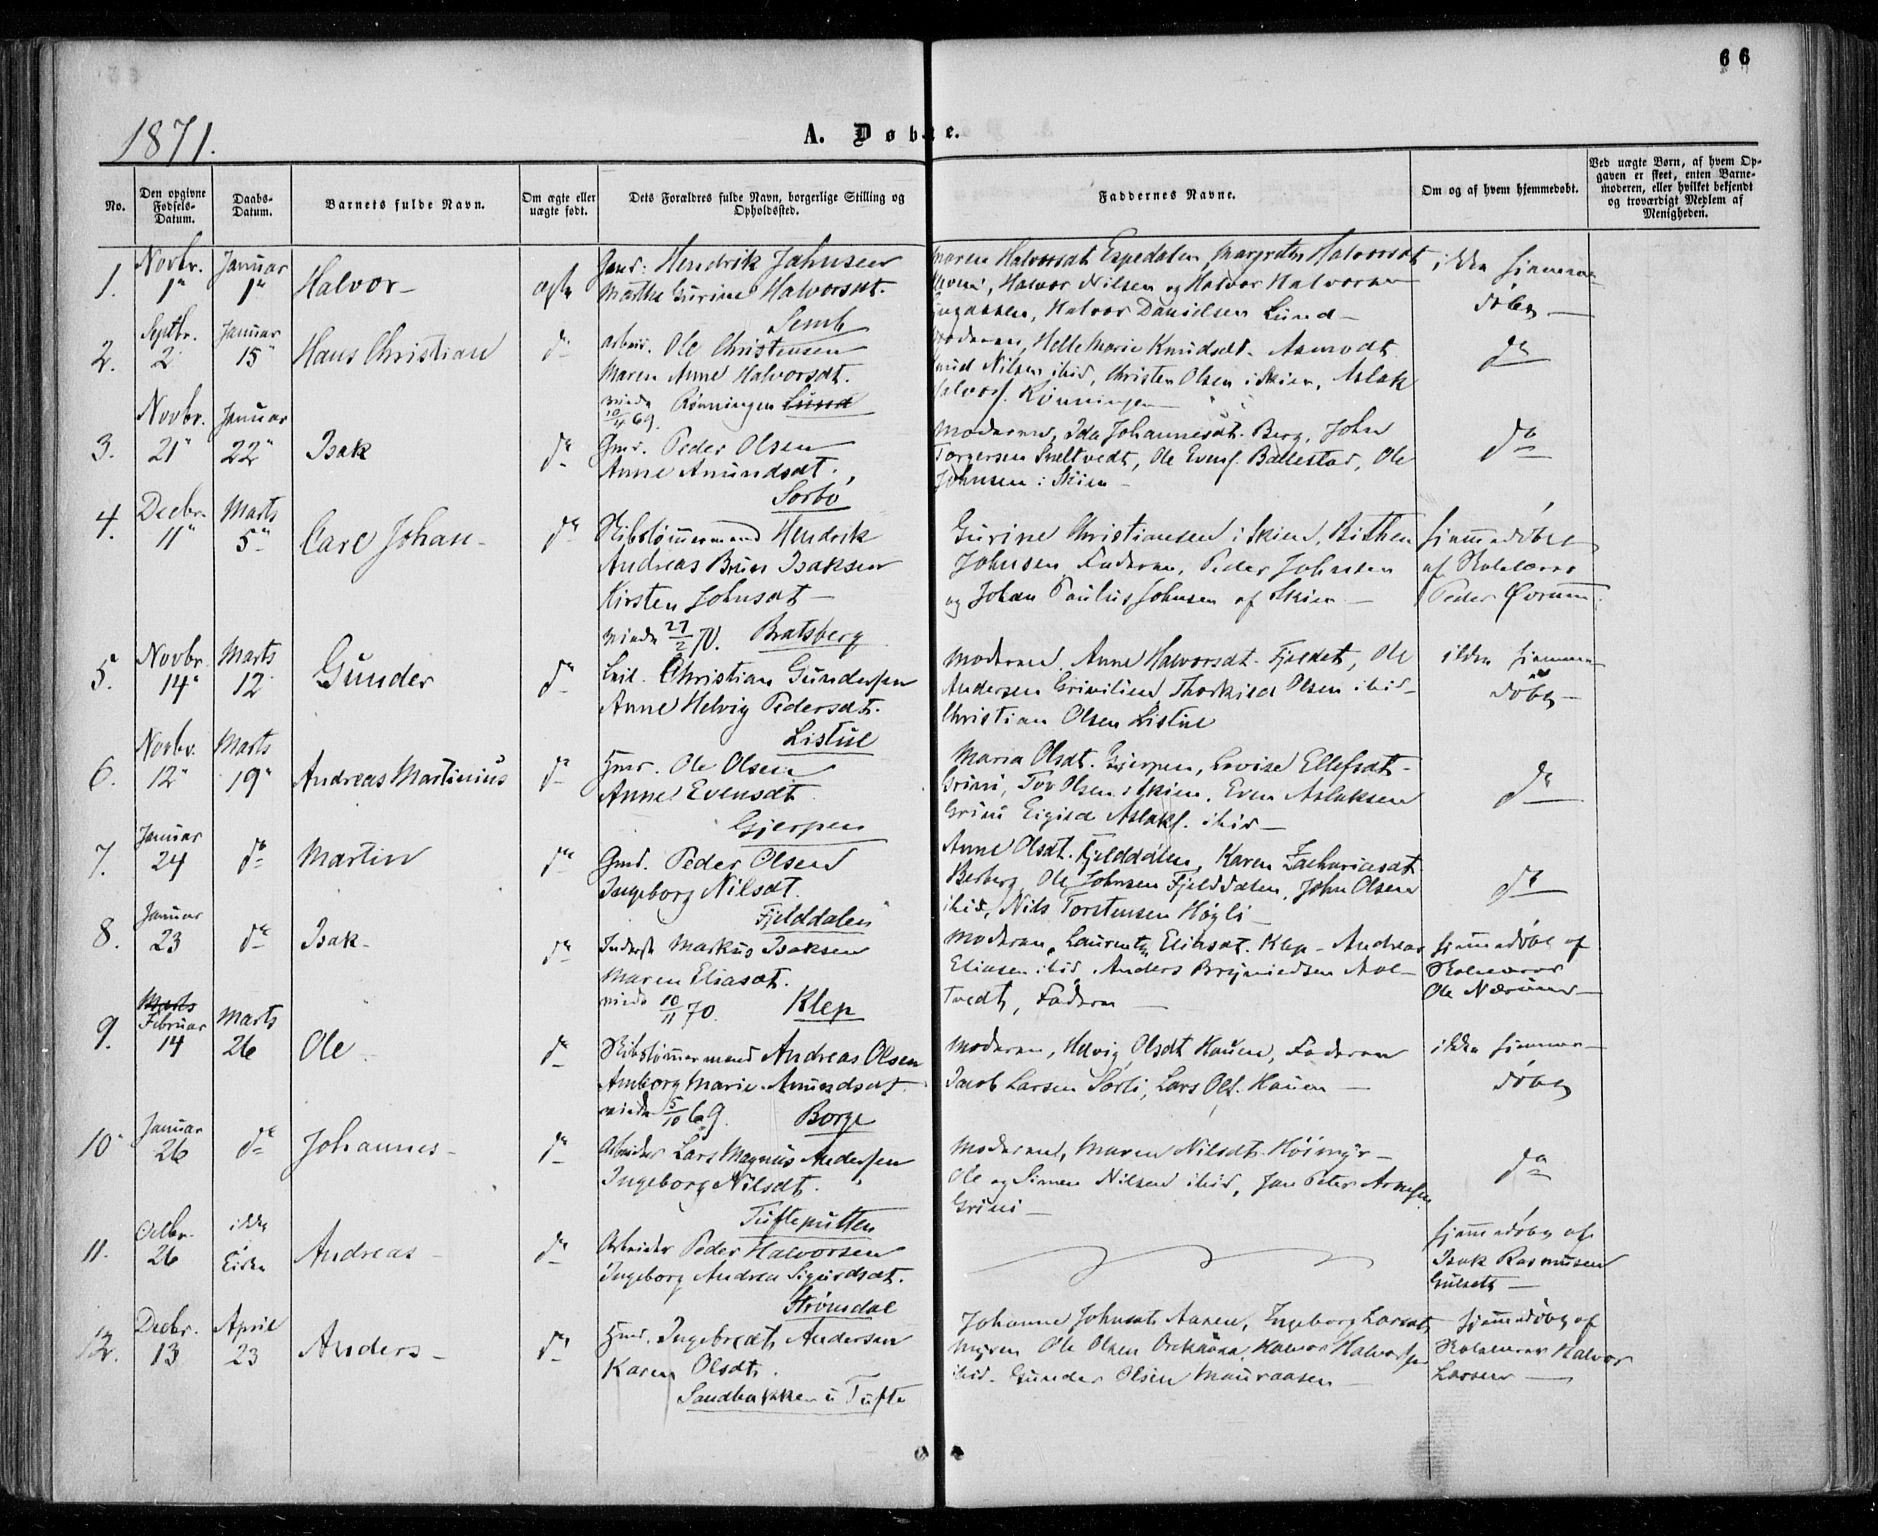 66
1871.
A. Døbte.
No.
Den opgivne Fødsels-Datum.
Daabs-Datum.
Barnets fulde Navn.
Om ægte eller uægte født.
Dets Forældres fulde Navn, borgerlige Stilling og Opholdssted.
Faddernes Navne.
Om og af hvem hjemmedøbt.
Ved uægte Børn, af hvem Opgaven er skeet, enten Barnemoderen, eller hvilket bekjendt og troværdigt Medlem af Menigheden.
1. Novbr. 1" Januar 1" Halvor ægte
Gmd: Hendrik Jahnsen
Marthe Gurine Halvorsdt.
Semb
Maren Halvorsdt Espedalen, Margrethe Halvorsdt
Halvor Nilsen og Halvor Halvorsen
Halvor Danielsen Lund
ikke hjemme
døbt
2. Septbr. 2" Januar 15" Hans Christian do
Arbeid. Ole Christensen
Maren Anne Halvorsdt.
viede 10/4 69. Rønningen Lund
Moderen, Helle Marie Knudsdt.
Nilsen ibid, Christen Olsen i Skien, Aslak
Halvors. Rønningen
do
3. Novbr. 21" Januar 22" Isak do
Gmd. Peder Olsen
Anne Amundsdt.
Sorbø
Moderen, Ida Johannesdt. Berg, John
Torgersen Sneltvedt, Ole Evens. Ballestad, Ole
Johnsen i Skien
do
4. Decbr. 11" Marts 5" Carl Johan do
Skibstømmermand Hendrik
Andreas Brun Isaksen
Kirsten Johnsdt
viede 27/2 70. Bratsberg
Gurine Christiansen i Skien, Birthe
Johnsen, Faderen, Peder Johnsen
og Johan Paulus Johnsen af Skien
hjemmedøbt
af Skolelærer
Peder Øvrum
5. Novbr. 14" Marts 12 Gunder do
Christian Gundersen
Anne Helvig Pedersdt.
Listul
Moderen, Anne Halvorsdt. Fjeldet, Ole
Andersen Grinilien, Thorkild Olsen ibid
Christian Olsen Listul
ikke hjemme
døbt
6. Novbr. 12" Marts 19" Andreas Martinius do
Hmd. Ole Olsen
Anne Evensdt
Gjerpen
Maria Olsdt. Gjerpen, Lovise Ellefsdt
Grini, Tov Olsen i Skien, Even Aslaksen
Grini Eigild Aslaks. ibid
do
7. Januar 24 do Martin do
Gmd. Peder Olsen
Ingeborg Nilsdt.
Fjelddalen
Anne Olsdt. Fjelddalen, Karen Zachariasdt
Berberg, Ole Johnsen Fjelddalen, John Olsen
ibid, Nils Torstensen Høgli
do
8. Januar 23 do Isak do
Inderst Markus Isaksen
Maren Eliasdt.
viede 10/11 70. Klep
Moderen, Laurentze Eliasdt. Klep, Andreas
Eliasen ibid, Anders Brynildsen Aal-
tvedt, Faderen
hjemmedøbt af
Skolelærer
Ole Nærum
9. Marts Februar 14 Marts 26 Ole do
Skibstømmermand Andreas Olsen
Amborg Marie Amundsdt
viede 5/10 69. Borge
Moderen, Helvig Olsdt Hauen, Faderen
Jacob Larsen Sorli, Lars Ols. Hauen
ikke hjemme
døbt
10. Januar 26 do Johannes do
Arbeider Lars Magnus Andersen
Ingeborg Nilsdt.
Tufteputten
Moderen, Maren Nilsdt. Høimyr
Ole og Simen Nilsen ibid, Jan Peter Arnesen
Grini
do
11. Octbr. 26 ikke Kirke Andreas do
Arbeider Peder Halvorsen
Ingeborg Andrea Sigurdsdt.
Strømdal
hjemmedøbt af
Isak Rasmusen
Gulseth
12. Decbr. 13 April 23 Anders do
Hmd. Ingebredt Andersen
Karen Olsdt.
Sandbakken u Tufte
Johanne Johnsdt Aasen, Ingeborg Larsdt
Myren Ole Olsen Halvor Halvorsen
ibid. Gunder Olsen Mauraasen
hjemmedøbt af
Skolelærer Halvor
Larsen